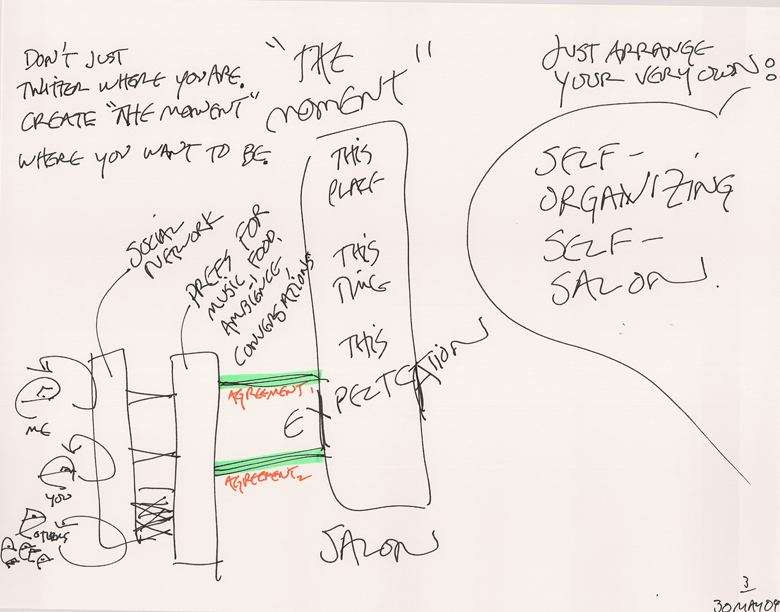 DON'T JUST
TWITTER WHERE YOU ARE.
CREATE "THE MOMENT"
WHERE YOU WANT TO BE.
"THE
MOMENT"
JUST ARRANGE
YOUR VERY OWN:
SELF-
ORGANIZING
SELF-
SALON.
SOCIAL
NETWORK
PREFS FOR
MUSIC, FOOD,
AMBIENCE,
CONVERSATIONS
THIS
PLACE
THIS
TIME
THIS
EXPECTATION
AGREEMENT 1
AGREEMENT 2
ME
YOU
OTHERS
SALON
3
30 MAY 09